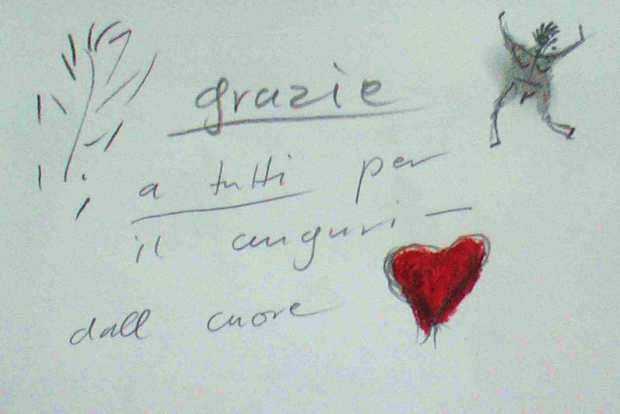 grazie
a tutti per
il auguri –
dall cuore